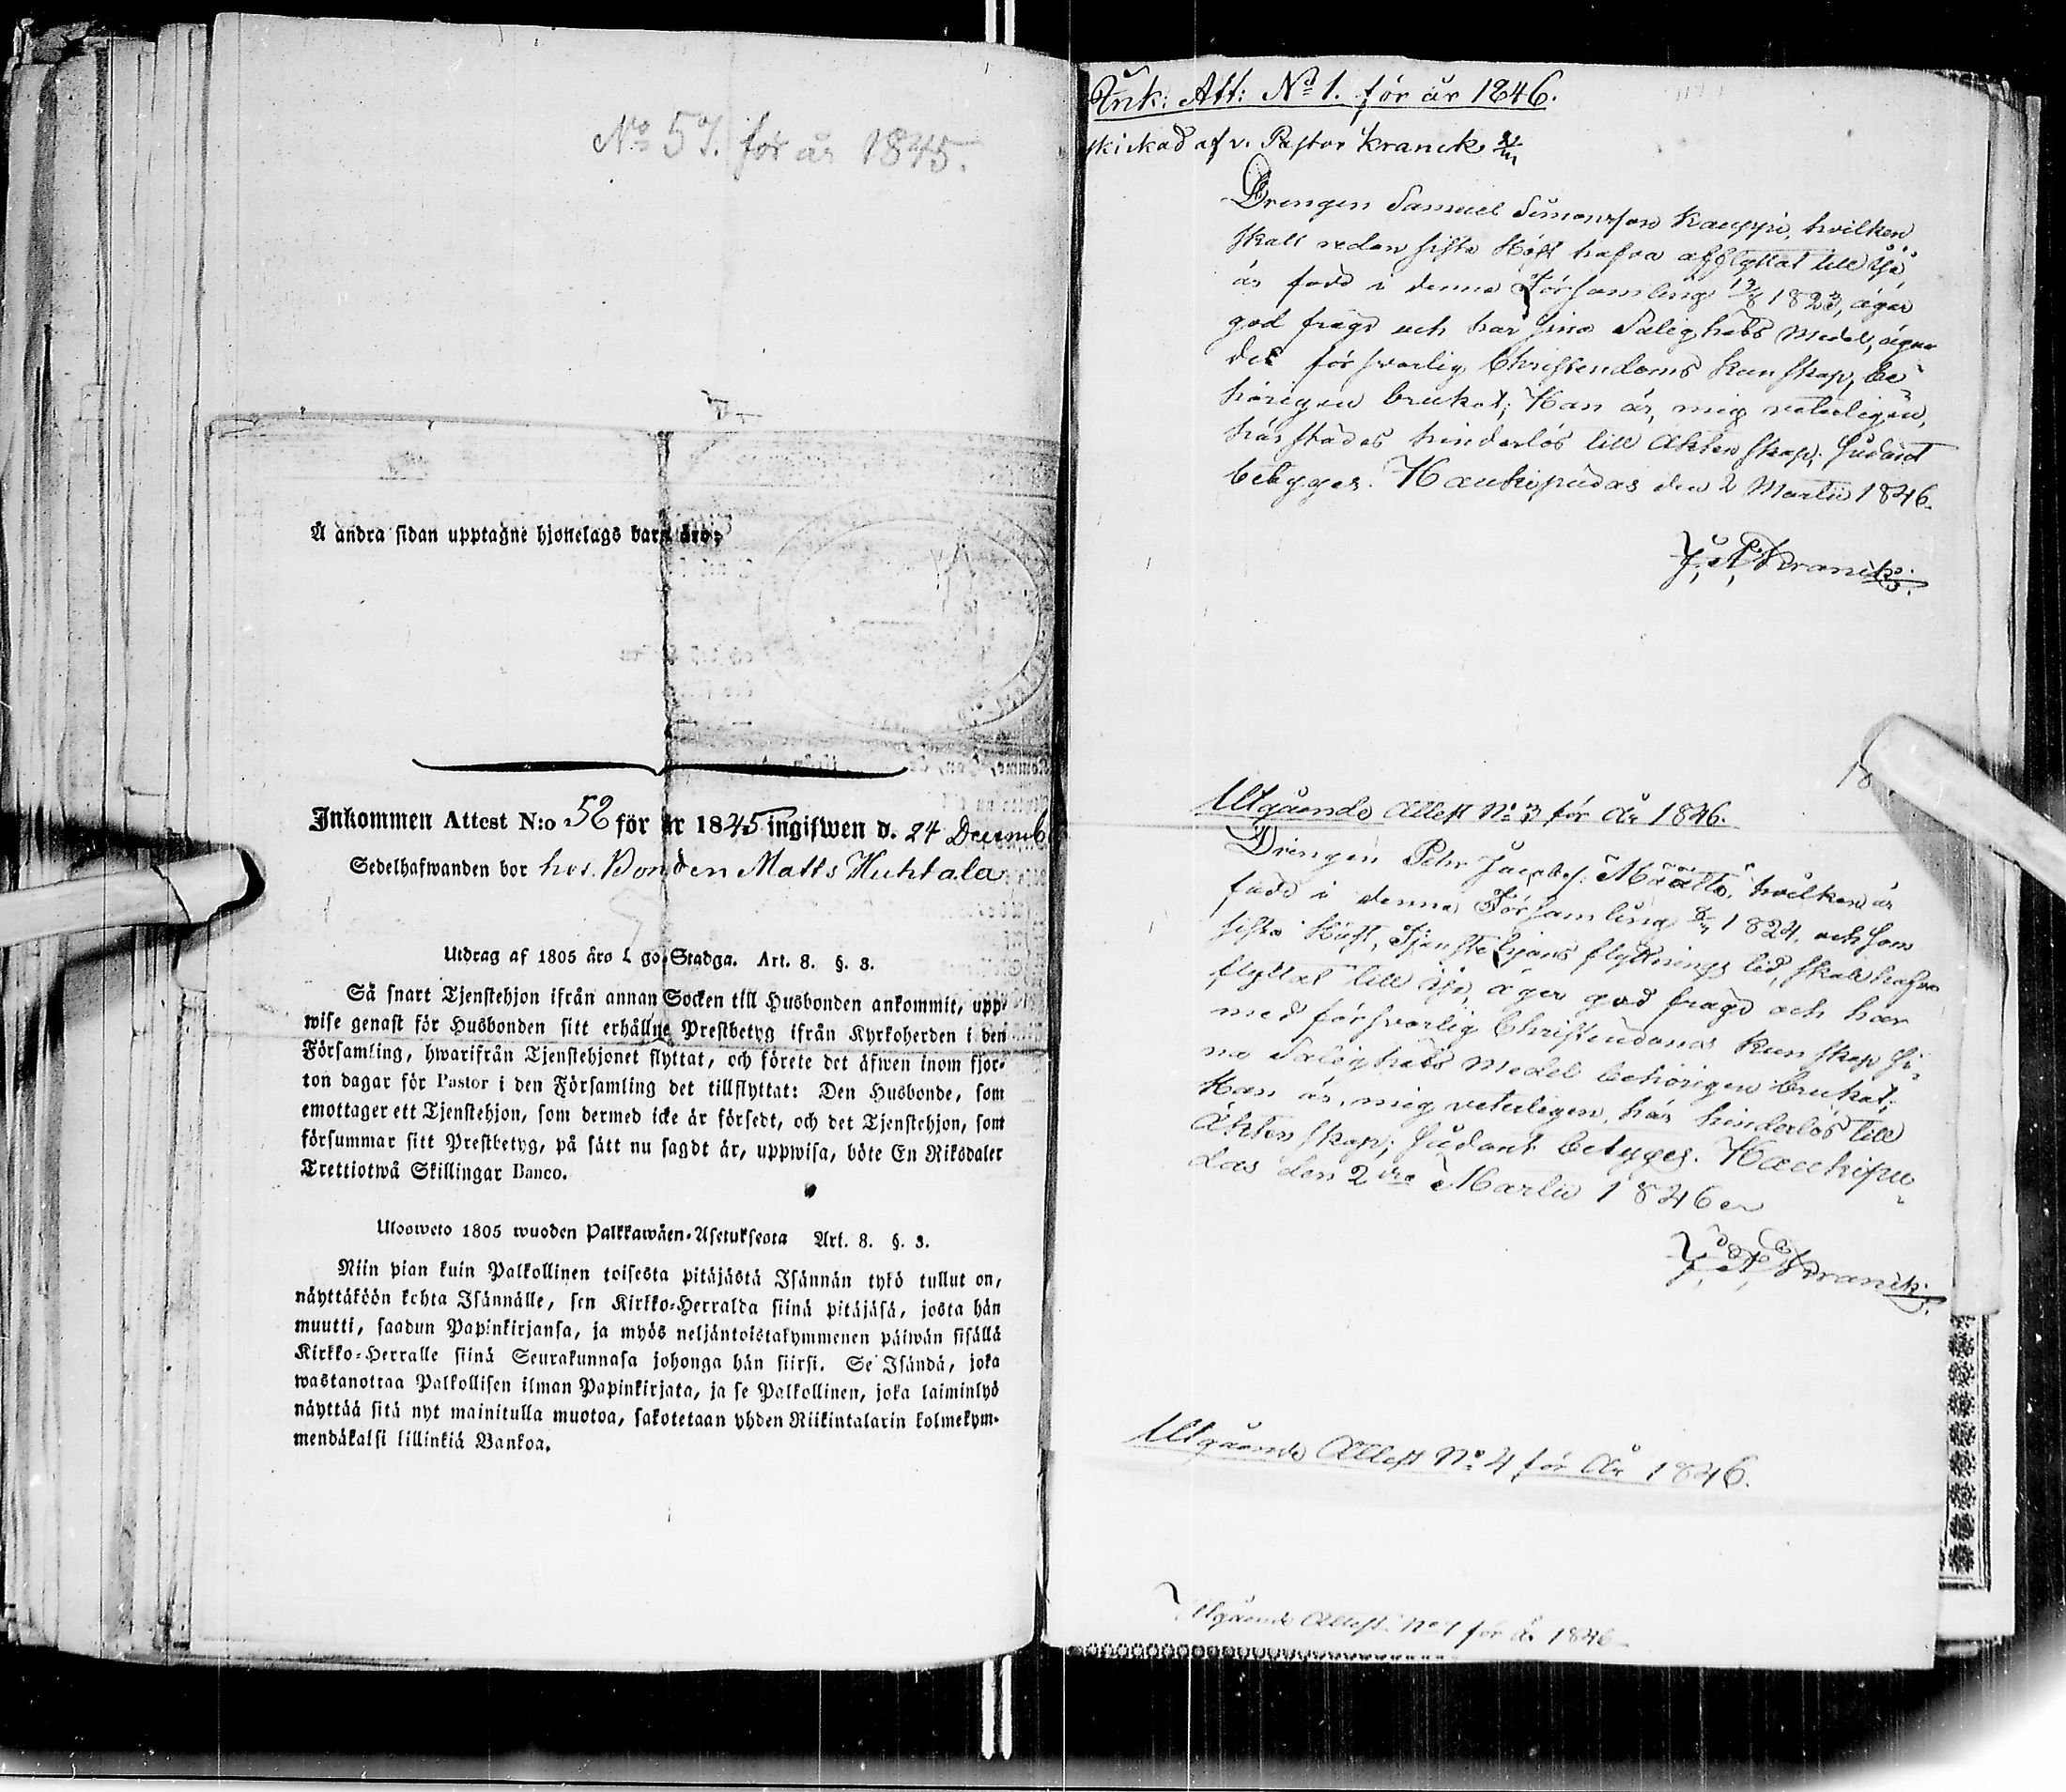 No 57. för år 1845.
Å andra sidan upptagne hjonelags barn äro:
Inkommen Attest N:o 52 för år 1845 ingifwen d. 24 Decemb
Sedelhafwanden bor hos Bonden Matts Huhtala
Utdrag af 1805 års Lego-Stadga. Art. 8. §. 3.
Så snart Tjenstehjon ifrån annan Socken till Husbonden ankommit, upp-
wise genast för Husbonden sitt erhållne Prestbetyg ifrån Kyrkoherden i den
Församling, hwarifrån Tjenstehjonet flyttat, och förete det äfwen inom fjor-
ton dagar för Pastor i den Församling det tillflyttat: Den Husbonde, som
emottager ett Tjenstehjon, som dermed icke är försedt, och det Tjenstehjon, som
försummar sitt Prestbetyg, på sätt nu sagdt är, uppwisa, böte En Riksdaler
Trettiotwå Skillingar Banco.
Ulosweto 1805 wuoden Palkkawäen-Asetuksesta Art. 8. §. 3.
Niin pian kuin Palkollinen toisesta pitäjästä Isännän tykö tullut on,
näyttäköön kohta Isännälle, sen Kirkko-Herralda siinä pitäjäsä, josta hän
muutti, saadun Papinkirjansa, ja myös neljäntoistakymmenen päiwän sisällä
Kirkko-Herralle siinä Seurakunnasa johonga hän siirsi. Se Isändä, joka
wastanottaa Palkollisen ilman Papinkirjata, ja se Palkollinen, joka laiminlyö
näyttää sitä nyt mainitulla muotoa, sakotetaan yhden Riikintalarin kolmekym-
mendäkaksi killinkiä Bankoa.
Ink: Att: No 1. för år 1846.
skickad af v. Pastor Kranck
Drengen Samuel Simonsson Kauppi, hvilken
skall redan sista Höst hafva afflyttat till Ijo
är född i denna Församling 1823, äger
god frägd och har sina Salighets Medel, äger
det försvarlig Christendoms kunskap, be-
hörigen brukat; Han är, mig veterligen,
härstädes hinderlös till Äktenskap; sådant
betyges. Haukipudas den 2 Martii 1846.
J. A. Kranck.
Utgående Attest No 3 för År 1846.
Drengen Petr Jacobs. Määttä, hvilken är
född i denna Församling 1824, och som
sista Höst, Tjenstehjons flyttnings tid, skall hafva
flyttat till Ijo, äger god frägd och har
med försvarlig Christendoms kunskap si-
na Salighets Medel behörigen brukat;
Han är, mig veterligen, här hinderlös till
Äktenskap; sådant betyges. Haukipu-
das den 2dra Martii 1846
J. A. Kranck.
Utgående Attest No 4 för År 1846.
Utgående Attest No för År 1846